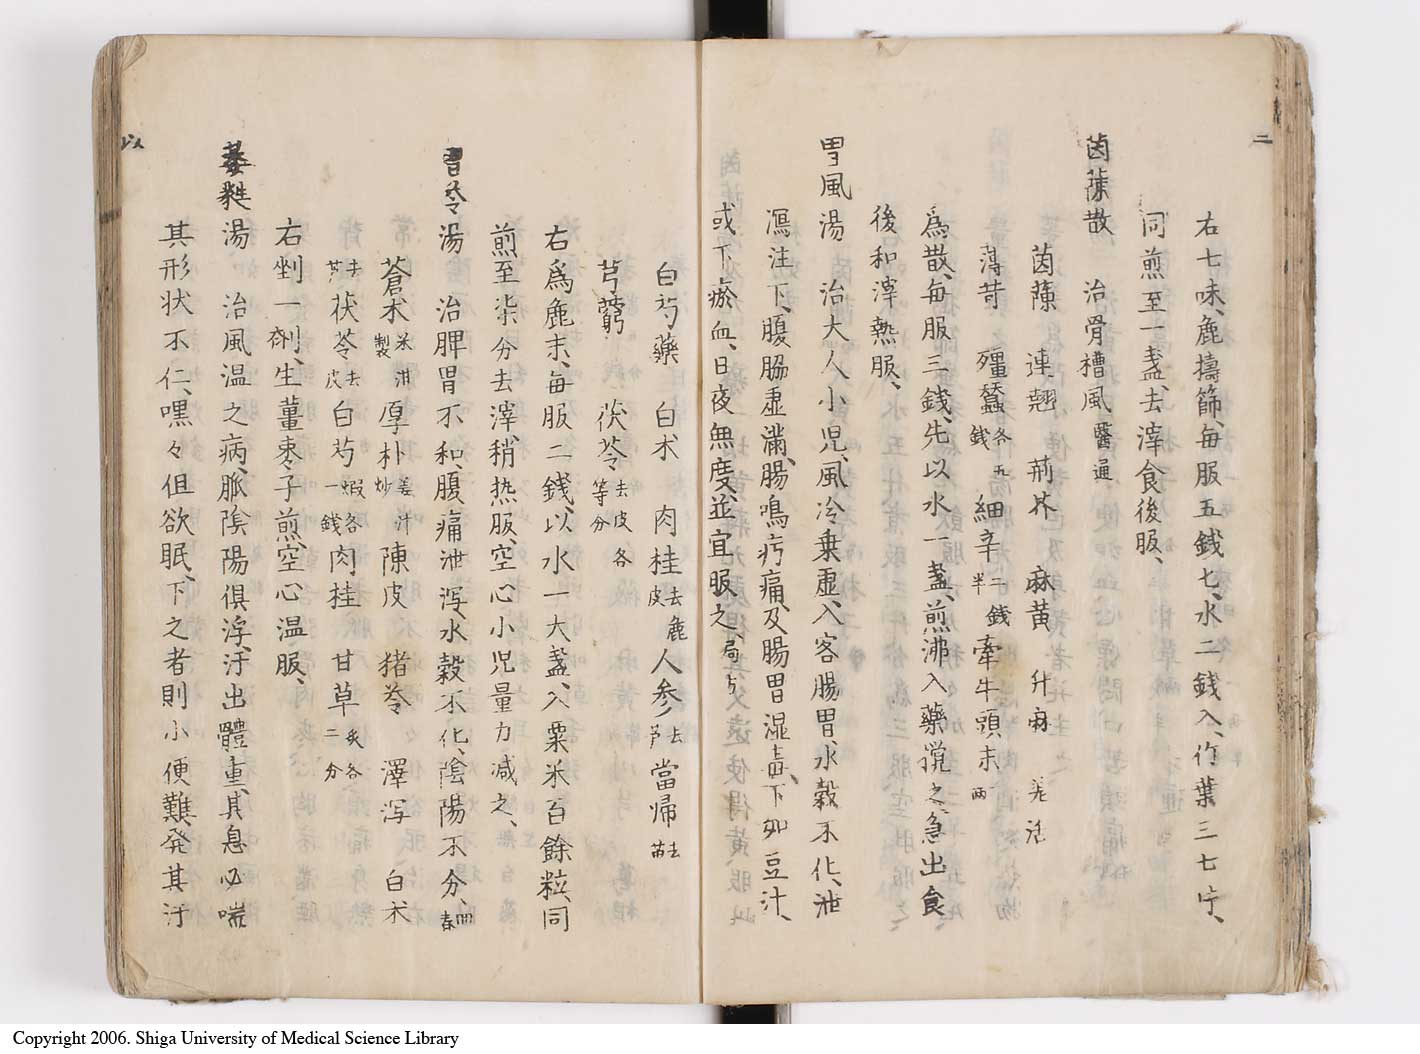 二
右七味、麁擣篩、毎服五銭七、水二銭入、竹葉三七片、
同煎至一盞、去滓食後服、
茵蔯散 治骨槽風 醫遍
茵蔯 連翹 荊芥 麻黄 升麻 羌活
薄苛 殭蠶 各五銭 細辛 二銭半 牽牛頭末 両
爲散、毎服三銭、先以水一盞、煎沸入藥、攪之、急出食
後和滓熱服、
胃風湯 治大人小児、風冷乗虚、入客腸胃、水穀不化、泄
瀉注下、腹脇虚満、腸鳴㽲痛、及腸胃湿毒、下如豆汁、
或下瘀血、日夜無度、並宜服之、局方
白芍藥 白朮 肉桂 去麁皮 人参 去芦 當帰 去苗
芎藭 茯苓 去皮各等分
右爲麁末、毎服二銭、以水一大盞、入粟米百餘粒、同
煎至柒分去滓稍热服、空心小児量力减之、
胃苓湯 治脾胃不和、腹痛泄瀉、水穀不化、陰陽不分、
蒼朮 米泔製 厚朴 姜汁炒 陳皮 猪苓 澤瀉 白朮
茯苓 去皮 白芍 煨各一銭 肉桂 甘草 炙各二分
右剉一剤、生薑棗子煎、空心温服、
湯 治風温之病、脈陰陽倶浮、汗出體重、其息必喘
其形状不仁、嘿々但欲眠、下之者則小便難、発其汗
以